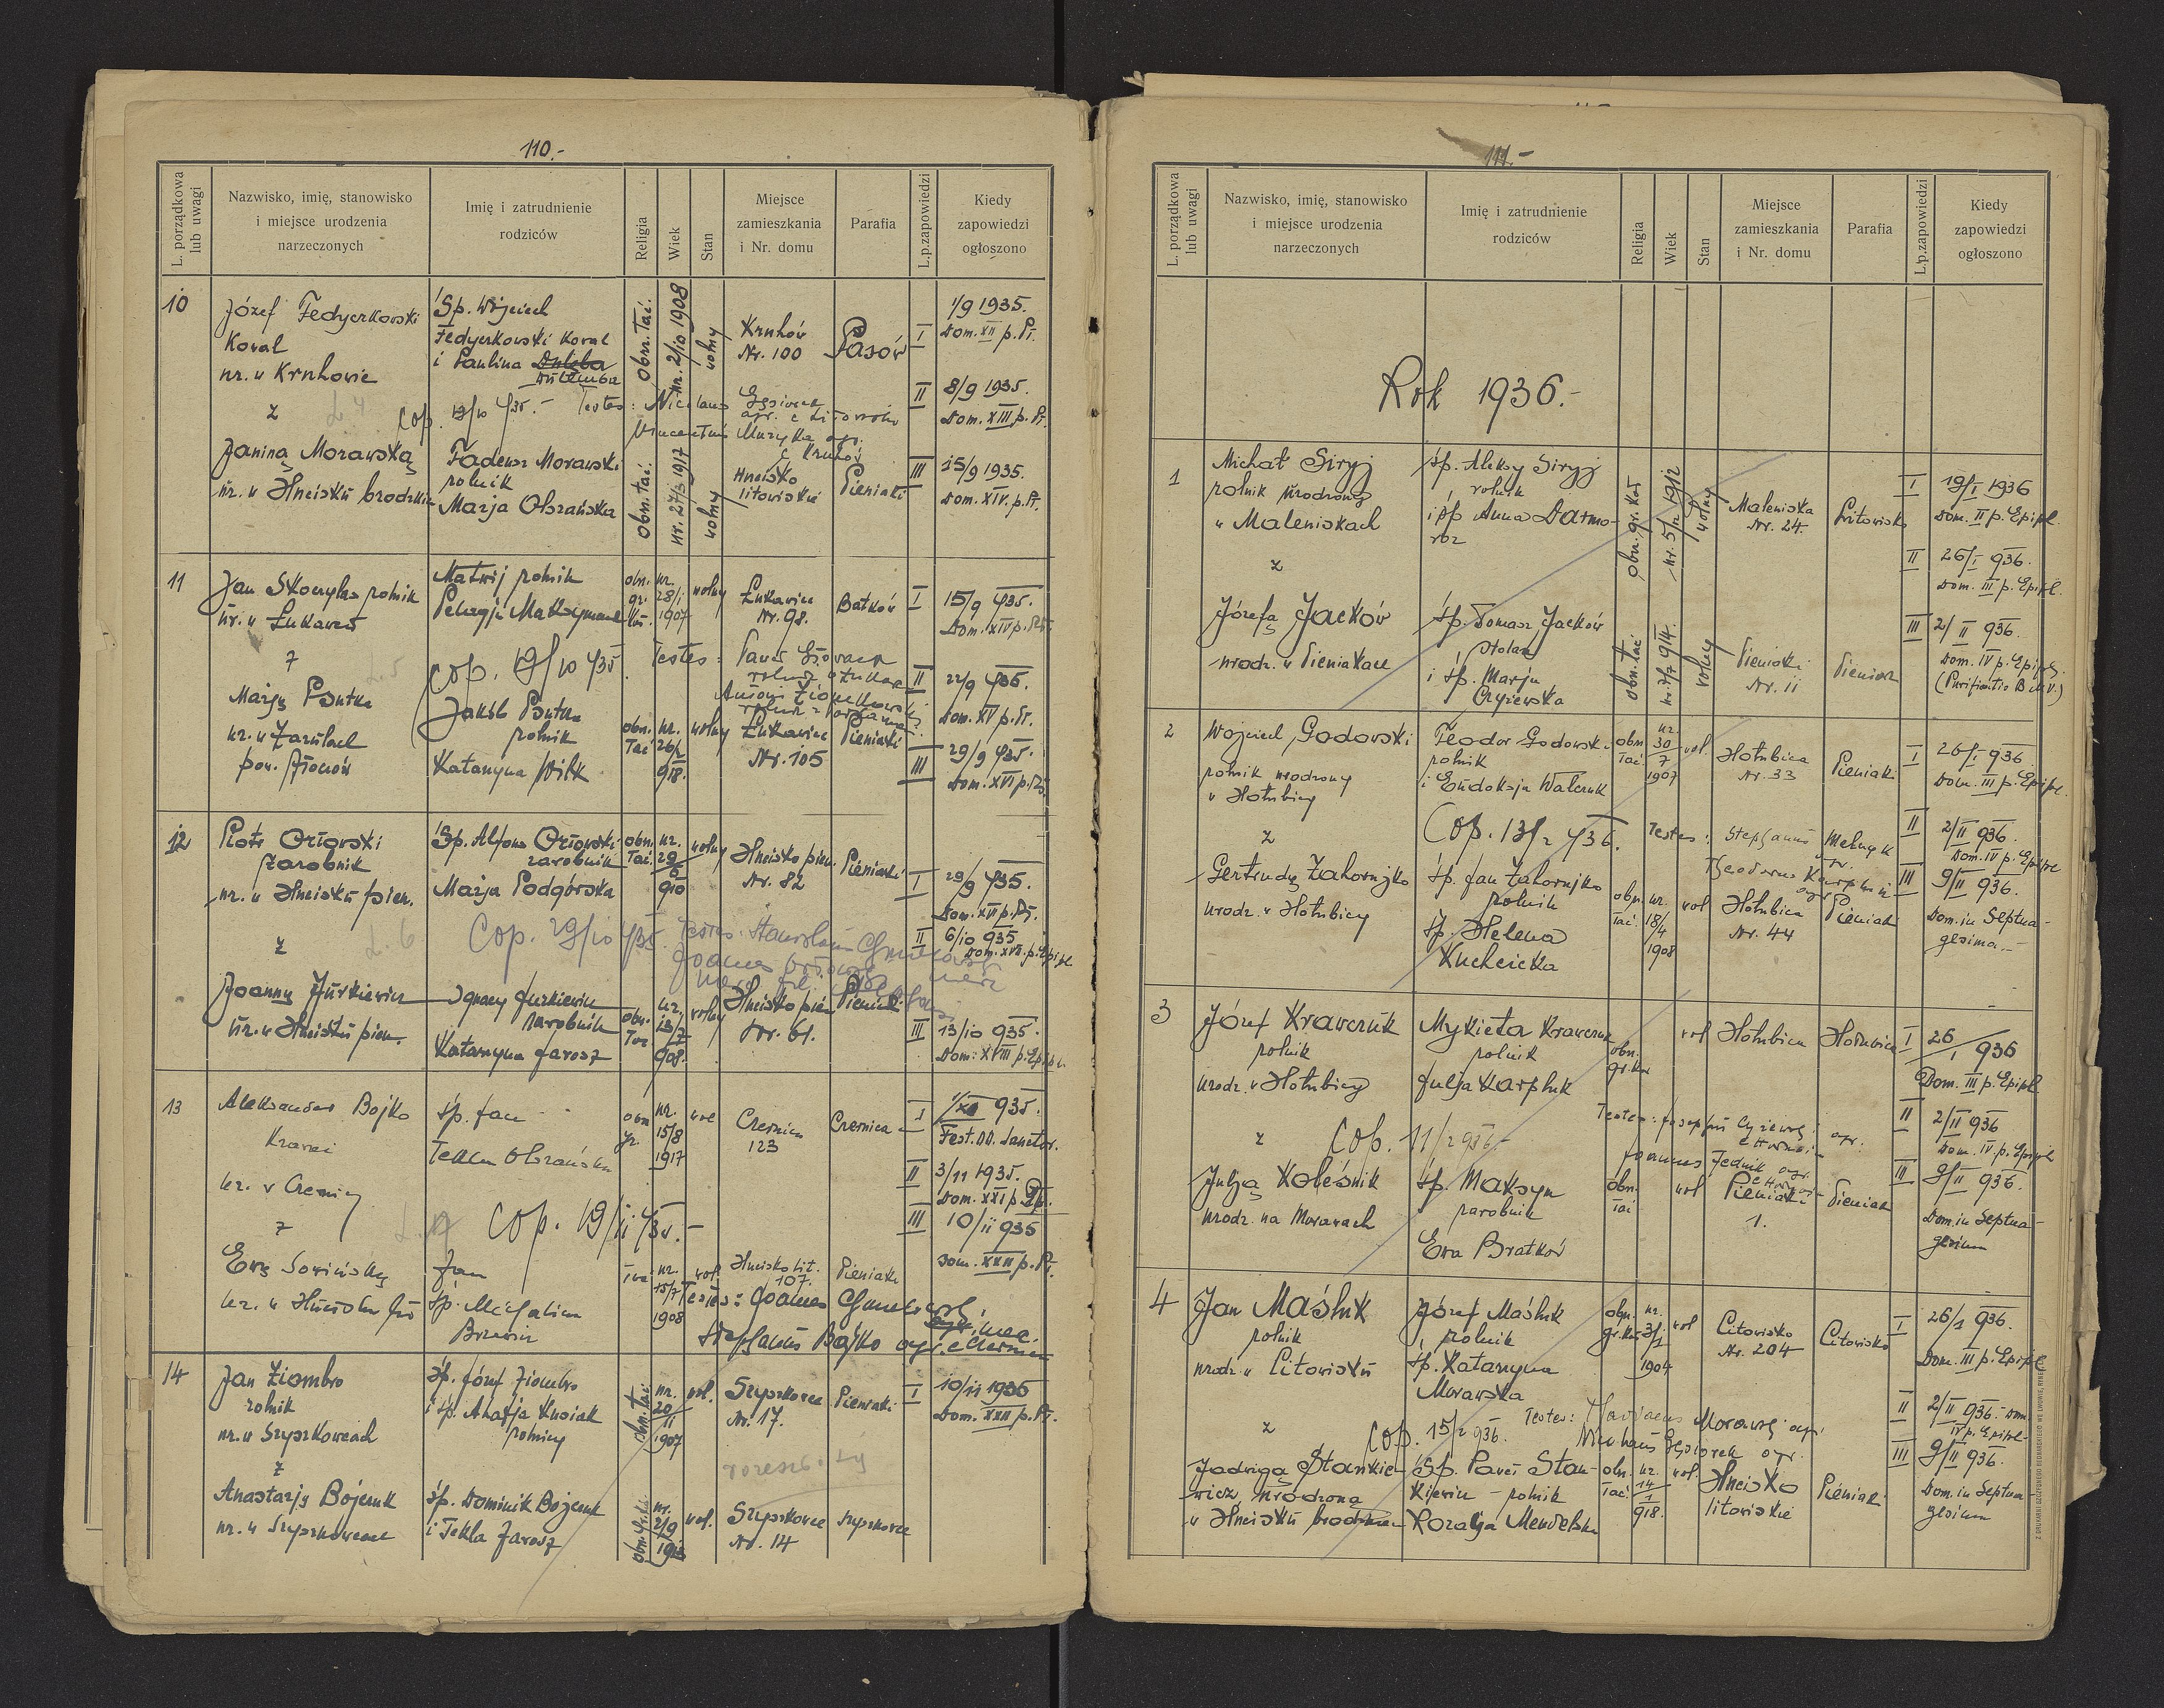 110.-
L. porządkowa lub uwagi
Nazwisko, imię, stanowisko i miejsce urodzenia narzeczonych
Imię i zatrudnienie rodziców
Religia
Wiek
Stan
Miejsce zamieszkania i Nr. domu
Parafia
L.p.zapowiedzi
Kiedy zapowiedzi ogłoszono
10
Józef Fedyczkowski
Kowal
ur. w Kruhowie
z
Śp. Wojciech
Fedyczkowski kowal
i Paulina
obrz. łać.
ur. 2/10 1908
wolny
Kruhów
Nr. 100
Sasów
I
1/9 1935.
Dom. XII p. Pt.
II
8/9 1935.
Dom. XIII p. Pt.
Cop. 13/10 935.- Testes: Nicolaus
Vincentius Muzyka agr.
c Kruhów
Janiną Morawską
ur. w Hucisku brodzkim
Tadeusz Morawski
rolnik
Marja Olszańska
obrz. łać.
ur. 27/3 1917
wolny
Hucisko
litowiskie
Pieniaki
III
15/9 1935.
Dom. XIV. p. Pt.
11
Jan Skoczylas rolnik
ur. w Łukawcu
z
Matwij rolnik
Pelagja
obrz.
gr.
ur.
28/1
1907
wolny
Łukawiec
Nr. 98.
Batków
I
15/9 935.
Dom. XIV p. Pt.
Cop. 19/10 935. Testes: Paweł
II
22/9 935.
Dom. XV p. Pt.
Marją Pontka
ur. w Jarulach
pow. Złoczów
Jakób Pontka
rolnik
Katarzyna Wilk
obrz.
łać.
ur.
26/2
918.
wolny
Łukawiec
Nr. 105
Pieniaki
III
29/9 935.
Dom. XVI p. Pt.
12
Piotr Orłowski
zarobnik
ur. w Hucisku pien.
z
Śp. Alfons Orłowski
zarobnik
Marja Podgórska
obrz.
łać.
ur.
29/6
910
wolny
Hucisko pien.
Nr. 82
Pieniaki
I
29/9 935.
Dom. XVI p. Pt.
L. 6
Cop. 29/10 935. Testes: Stanislaus
II
6/10 935
Dom. XVII. p.
Joanną Jurkiewicz
ur. w Hucisku pien.
Ignacy Jurkiewicz
zarobnik
Katarzyna Jarosz
obrz.
ur.
13/7
908.
wolny
Hucisko pien
Nr. 61.
Pieniaki
III
13/10 935.
Dom: XVIII p.
13
Aleksander Bojko
Krawiec
ur. w Czernicy
z
śp. Jan
Tekla Olszańska
obrz
gr.
ur.
15/8
1917
wol
Czernica
123
Czernica
I
1/XI 935.
Fest. OO. Sanctor.
II
3/11 1935.
Dom. XXI p.
Cop. 19/11 935.-
III
10/11 935
Dom. XXII p. Pt.
Ewą Sowińską
ur. w Hucisku
Jan
śp. Michalina
łać
ur.
15/7
1908
wol.
Hucisko lit.
107.
Pieniaki
Testes: Joannes
Stephanus Bojko agr. c Czernica
14
Jan Ziombro
rolnik
ur. w Szyszkowcach
z
śp. Józef Ziombro
i śp. Ahafja Kusiak
rolnicy
obrz. łać
ur.
20/11
1907
wol.
Szyszkowce
Nr. 17.
Pieniaki
I
10/11 1935
Dom. XXII p. Pt.
Anastazją Bojczuk
ur. w Szyszkowcach
śp. Dominik Bojczuk
i Tekla Jarosz
ur.
2/9
1913
wol.
Szyszkowce
Nr. 14
Szyszkowce
111.-
L. porządkowa lub uwagi
Nazwisko, imię, stanowisko i miejsce urodzenia narzeczonych
Imię i zatrudnienie rodziców
Religia
Wiek
Stan
Miejsce zamieszkania i Nr. domu
Parafia
L.p.zapowiedzi
Kiedy zapowiedzi ogłoszono
Rok 1936.-
1
Michał Siryj
rolnik urodzony
w Maleniskach
z
śp. Aleksy Siryj
rolnik
i śp Anna Darmo-
roz
obrz. gr. kat
ur. 5/12 1912
wolny
Maleniska
Nr. 24.
Litowisko
I
19/I 1936
Dom. II p. Epiph.
II
26/I 936.
Dom. III p. Epiph.
Józefą Jacków
urodz. w Pieniakach
śp. Tomasz Jacków
stolarz
i śp. Marja
Czyżewska
obrz. łać
ur. 7/7 914.
wolny
Pieniaki
Nr. 11
Pieniaki
III
2/II 936.
Dom. IV p. Epiph.
(Purificatio B.M.V.)
2
Wojciech Godowski
rolnik urodzony
w Hołubicy
z
Teodor Godowski
rolnik
i Eudoksja Walczuk
obrz
łać
ur.
30/7
1907
wol.
Hołubica
Nr. 33
Pieniaki
I
26/I 936
Dom. III p. Epiph.
Cop. 13/2 936. Testes: Stephanus Melnyk
II
2/II 936.
Dom. IV p. Epiph
Gertrudą Zahorujko
urodz. w Hołubicy
śp. Jan Zahorujko
rolnik
śp. Helena
Kucheicka
obrz.
łać.
ur.
18/4
1908
wol
Hołubica
Nr. 44
Pieniaki
III
9/II 936.
Dom. in Septua-
gesima.-
3
Józef Krawczuk
rolnik
urodz. w Hołubicy
z
Mykieta Krawczuk
rolnik
Julja Karpluk
obrz.
gr. kat
wol
Hołubica
Hołubica
I
26/1 936
Dom. III p. Epiph
Cop. 11/2 936-
Testes: Josephus
Joannes Jednik agr.
II
2/II 936
Dom. IV p. Epiph
Julją Koleśnik
urodz. na Morawach
śp. Maksym
zarobnik
Ewa Bratków
obrz.
łać
wol
Pieniaki
1.
Pieniaki
III
9/II 936.
Dom. in Septua-
gesima
4
Jan Maśluk
rolnik
urodz. w Litowisku
z
Józef Maśluk
rolnik
śp. Katarzyna
Morawska
obrz.
gr. kat
ur.
3/1
1904
wol
Litowisko
Nr. 204
Litowisko
I
26/1 936.
Dom. III p. Epiph
Cop. 15/2 936.
Testes: Morawskj agr.
II
2/II 936.- Dom
IV p. Epiph-
Jadwigą Stankie-
wicz urodzoną
w Hucisku
Śp. Paweł Stan-
kiewicz - rolnik
Rozalja Mendelska
obrz.
łać
ur.
14/1
918.
wol.
Hucisko
litowiskie
Pieniaki
III
9/II 936.
Dom. in Septua-
gesima